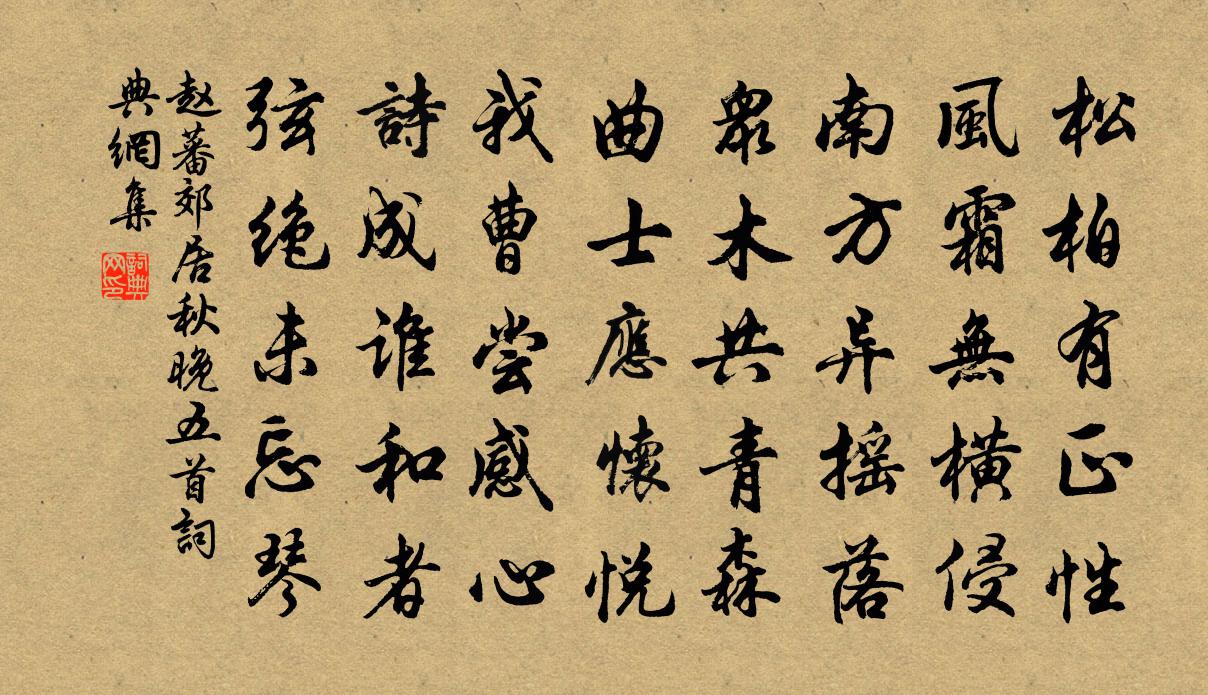 松柏有正性
風霜無橫侵
南方异摇落
衆木共青森
曲士應懷悦
我曹嘗感心
詩成誰和者
弦绝未忘琴
赵蕃郊居秋晚五首詞
典網集
詞典
网印